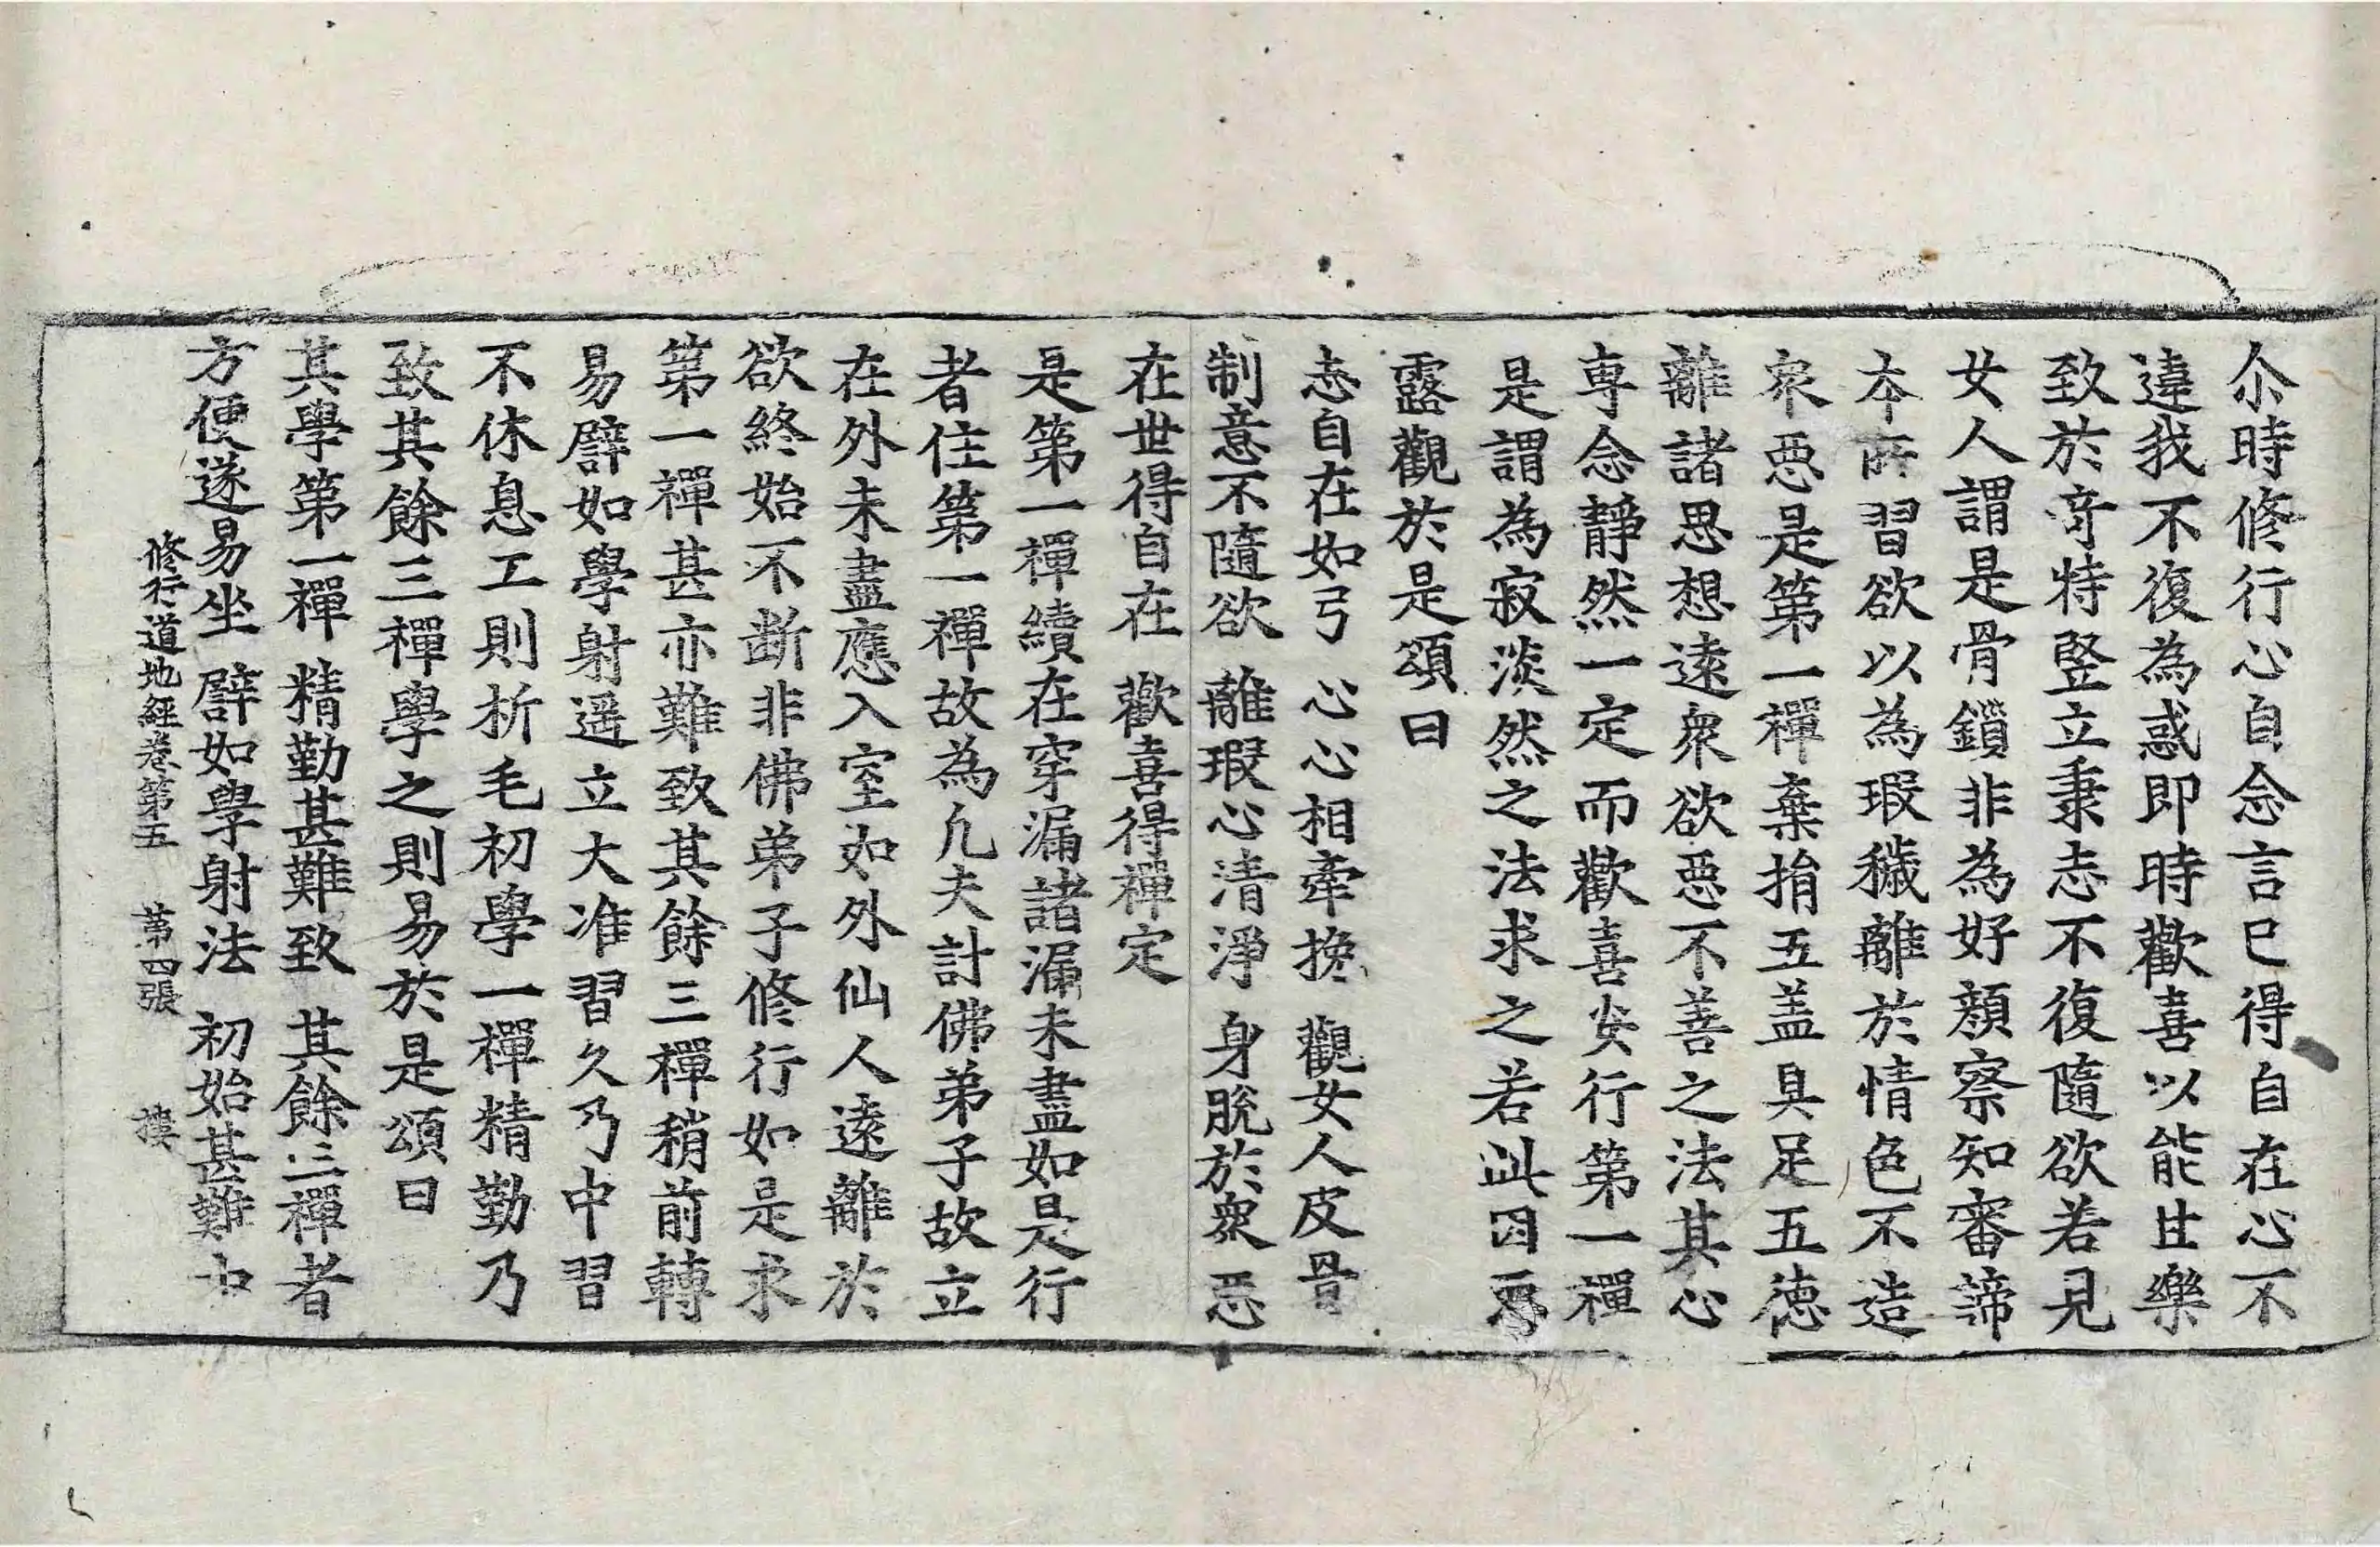 尒時修行心自念言已得自在心不
違我不復為惑即時歡喜以能甘樂
致於竒特竪立秉志不復隨欲若見
女人謂是骨鎖非為好顔察知審諦
本所習欲以為瑕穢離於情色不造
衆惡是第一禪棄捐五盖具足五徳
離諸思想遠衆欲惡不善之法其心
専念靜然一定而歡喜安行第一禪
是謂為寂淡然之法求之若此因惡
露觀於是頌曰
志自在如弓 心心相牽挽 觀女人皮骨
制意不隨欲 離瑕心清淨 身脫於衆惡
在世得自在 歡喜得禪定
是第一禪續在穿漏諸漏未盡如是行
者住第一禪故為凢夫計佛弟子故立
在外未盡應入室如外仙人遠離於
欲終始不断非佛弟子修行如是求
第一禪甚亦難致其餘三禪稍前轉
易譬如學射遥立大准習久乃中習
不休息工則析毛初學一禪精勤乃
致其餘三禪學之則易於是頌曰
其學第一禪 精勤甚難致 其餘三禪者
方便遂易坐 譬如學射法 初始甚難中
修行道地經卷第五 第四張